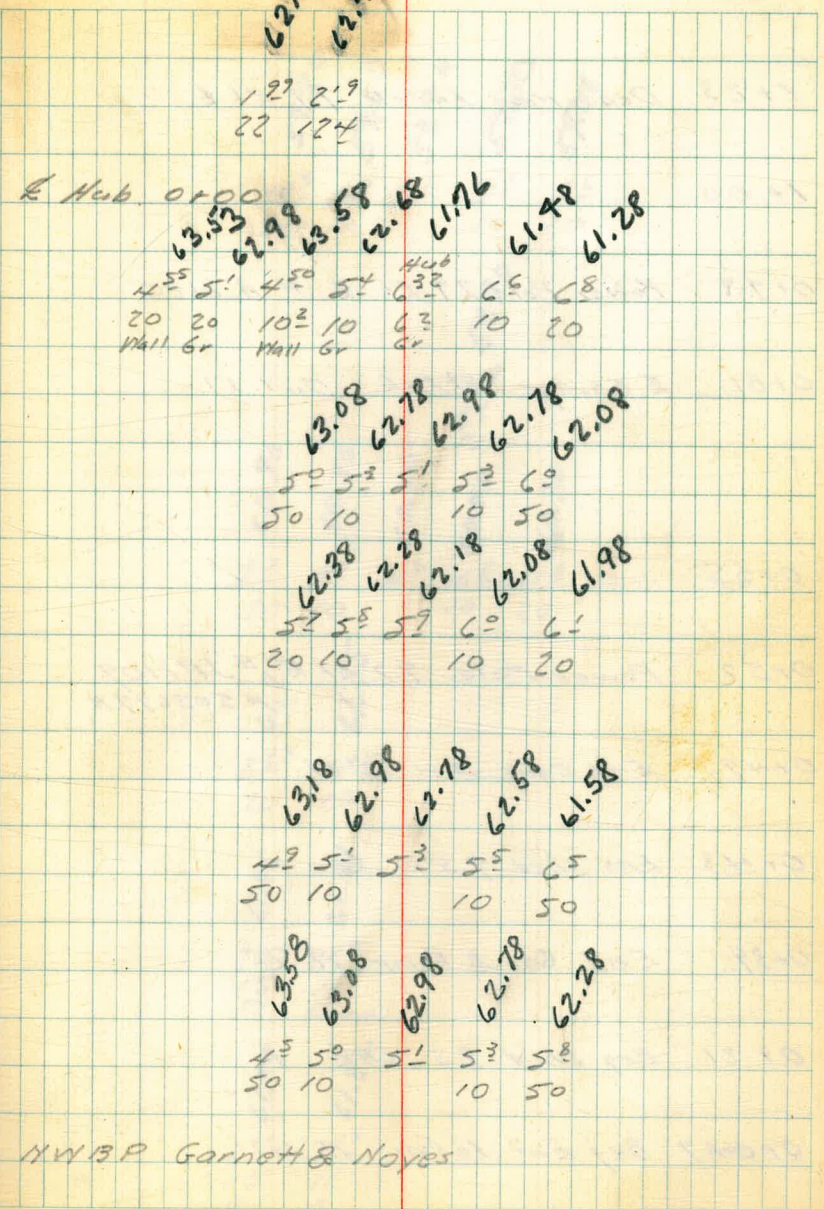 1 99 2 19
22 124
⅊ Hub 0+00
63.53 62.98 63.58 62.68 61.76 61.48 61.28
Hub
4 55 5 1 4 50 5 4 6 32 6 6 6 8
20 20 10 2 10 6 2 10 20
Wall Gr Wall Gr Gr
63.08 62.78 62.98 62.78 62.08
5 0 5 3 5 1 5 3 6 0
50 10 10 50
62.38 62.28 62.18 62.08 61.98
5 7 5 8 5 9 6 0 6 1
20 10 10 20
63.18 62.98 62.78 62.58 61.58
4 9 5 1 5 3 5 5 6 5
50 10 10 50
63.58 63.08 62.98 62.78 62.28
4 5 5 0 5 1 5 3 5 8
50 10 10 50
NWBP Garnett & Noyes